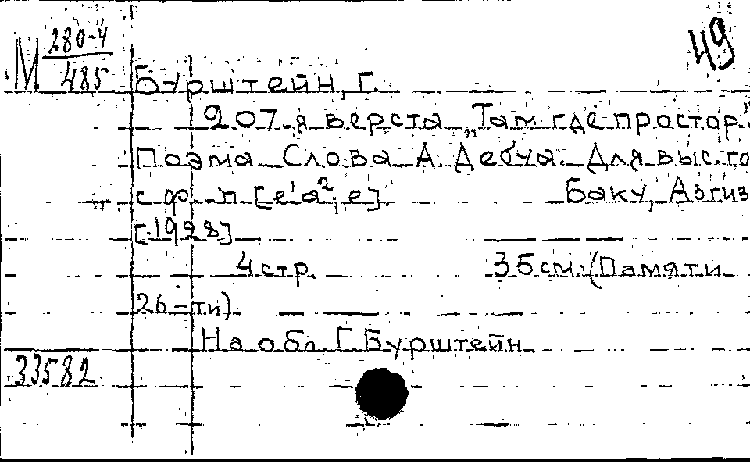 М 280-4
485
49
Бурштейн, Г.
207-я верста „Там где простор"
Поэма Слова А Дебуа. Для выс. го
с ф-п [e'-a², e] Баку, Азгиз
[1928]
4 стр. 35 см. (Памяти
26-ти)
На обл. Г. Бурштейн
33582